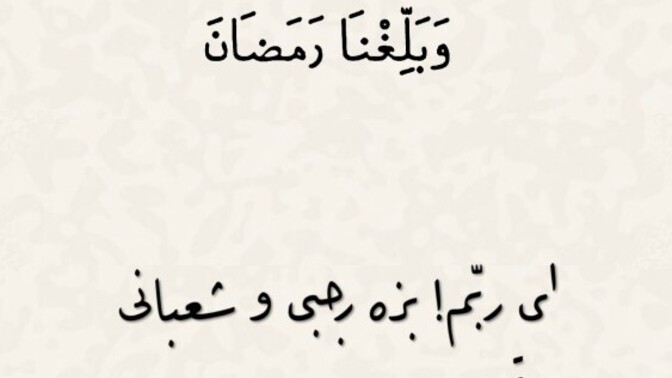 وَبَلِّغْنَا رَمَضَانَ
ای ربّم! بزه رجبی و شعبانی